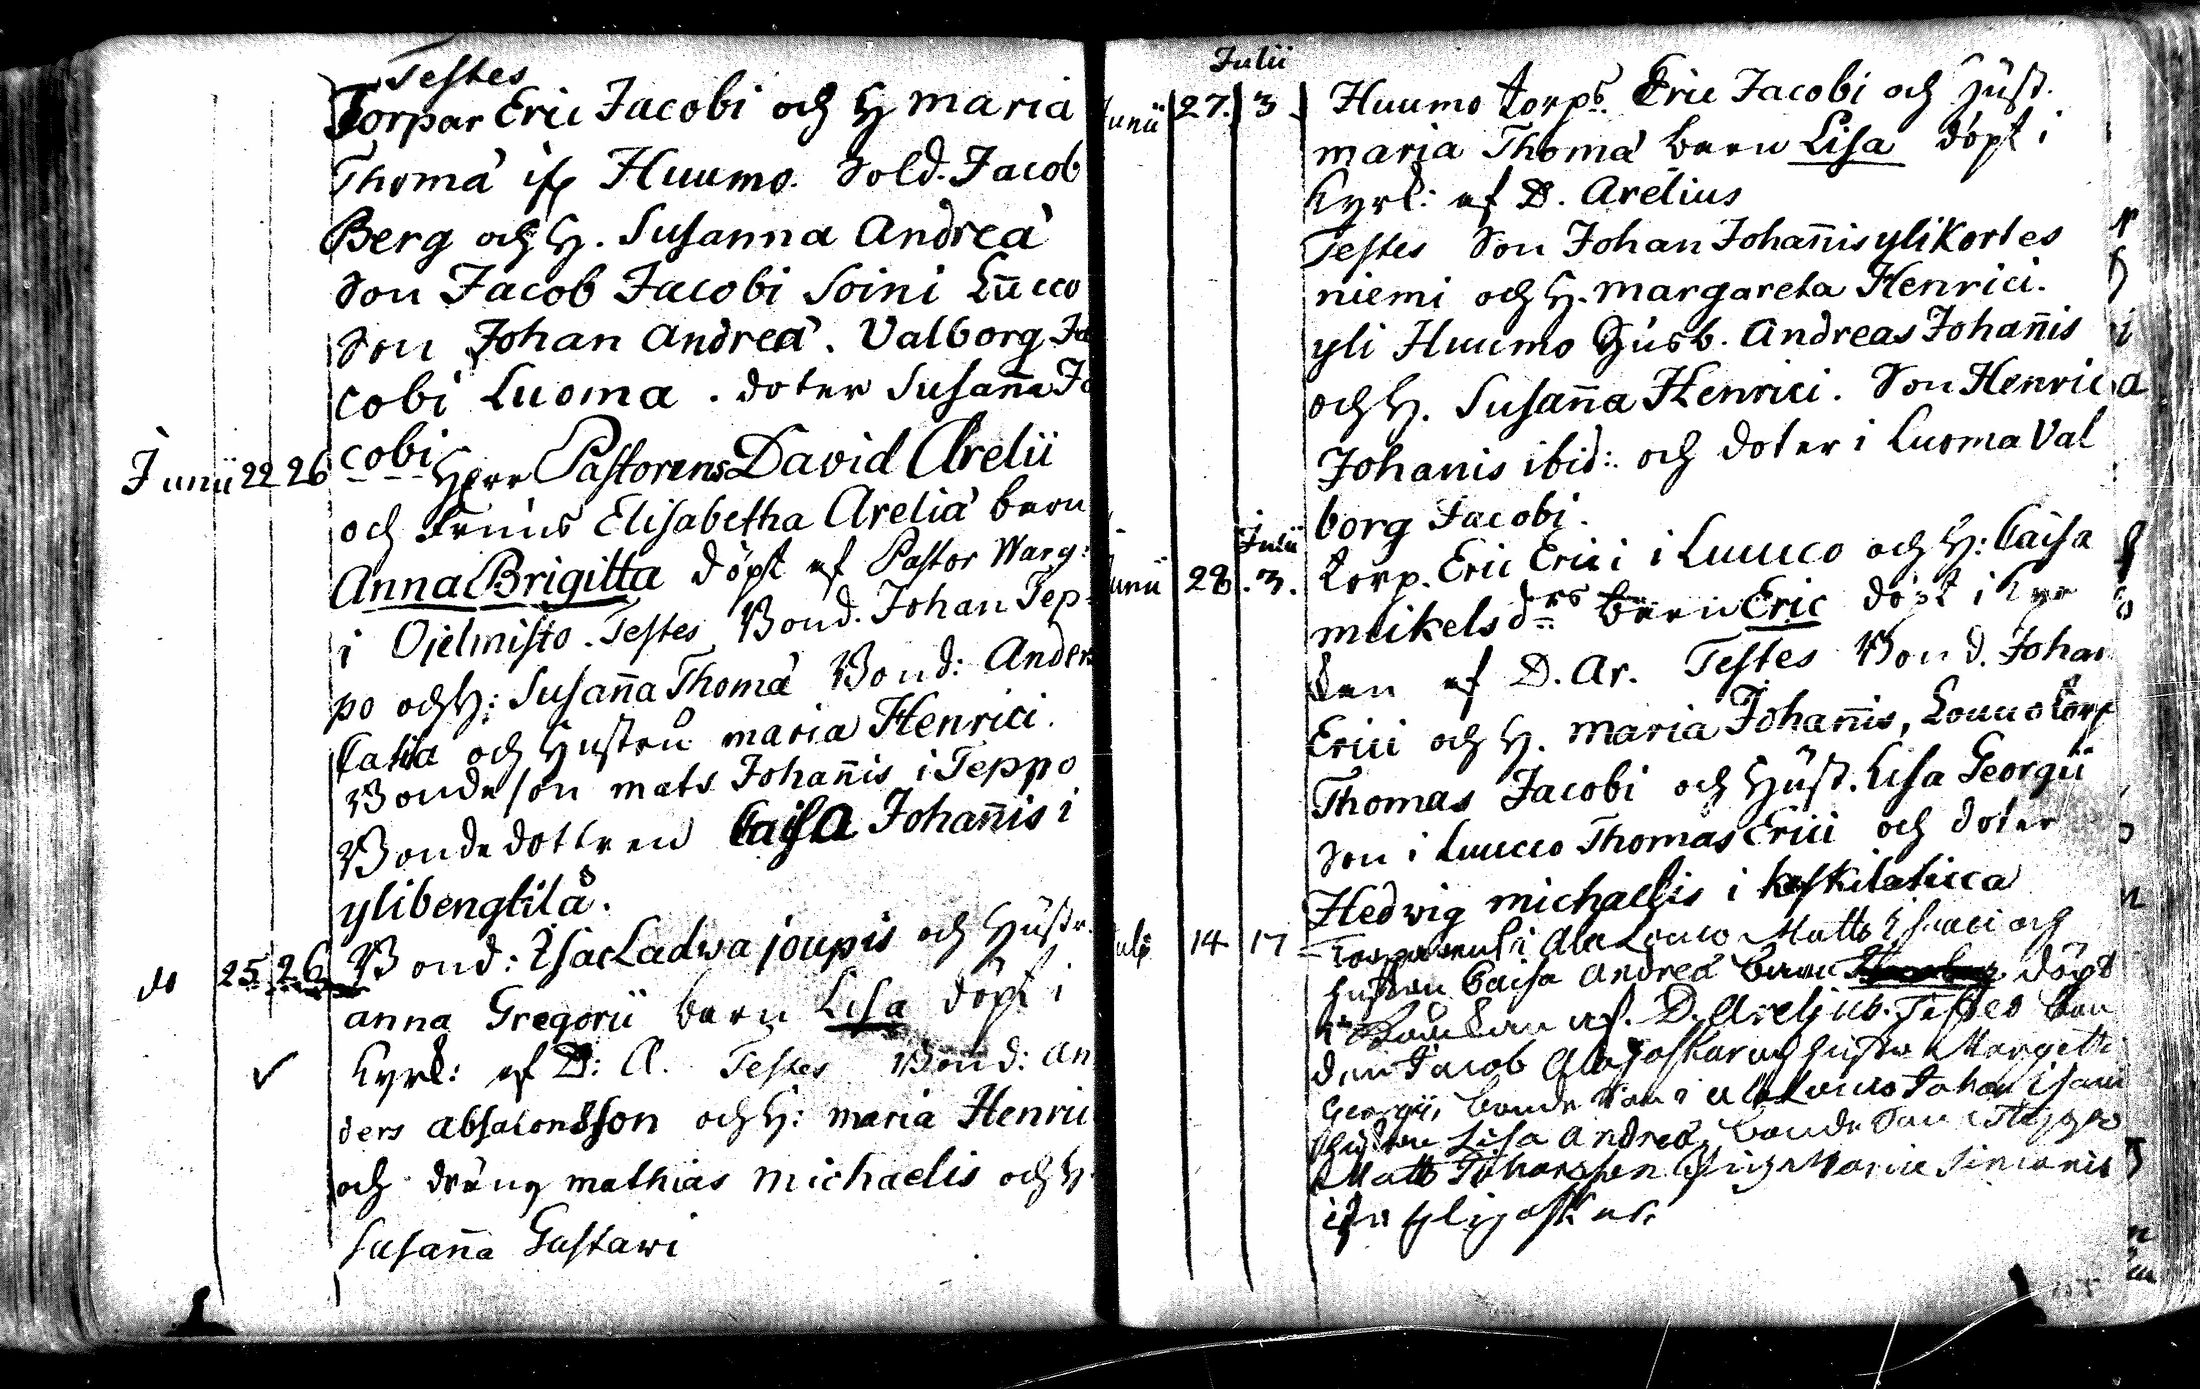 Testes
Torpar Eric Jacobi och H maria
Thomæ if Huumo. Sold. Jacob
Berg och H. Susanna Andreæ
Son Jacob Jacobi Soini Luuco
Son Johan Andreæ. Valborg Ja
cobi Luoma. doter Susan̄a Ja
cobi
Junii 22 26 Herr Pastorens David Arelii
och Fruus Elisabetha Areliæ barn
Anna Brigitta döpt af Pastor Warg:
i Ojelmisto. Testes Bond. Johan Tep-
po och H: Susan̄a Thomæ Bond: Anders
Catila och Hustru maria Henrici.
Bondeson mats Johan̄is i Teppo
Bondedottren Caisa Johan̄is i
ylibengtilä.
do 25 26 Bond: Isac Ladwajoupis och Hustr.
anna Gregorii barn Lisa döpt i
Kyrk: af D: A. Testes Bond: An
ders absalonsson och H: maria Henrici
och dräng mathias michaelis och H.
Susan̄a Gustawi
Julii
Junii 27. 3. Huumo torps. Eric Jacobi och Hust.
maria Thomæ barn Lisa döpt i
Kyrk: af D. Arelius
Testes Son Johan Johan̄is ylikortes
niemi och H. margareta Henrici.
yli Huumo Husb. Andreas Johan̄is
och H. Susan̄a Henrici. Son Henric
Johanis ibid: och doter i Luoma Val
borg Jacobi.
Julii
Junii 28. 3. torp. Eric Erici i Luuco och H: Caisa
meikels drs barn Eric döpt i Kyr
kan af D. Ar. Testes Bond. Johan
Erici och H. maria Johan̄is, Louco torp
Thomas Jacobi och Hust. Lisa Georgii
Son i Luuco Thomas Erici och doter
Hedwig michaelis i keskilaticca
Julii 14 17 i Ala Louco Matts Isaaci och
hustrun Caisa Andreæ barn döpt
af D. Arelius. Testes bon
den Jacob Alajoskar och hustru Margetta
Georgii, bonde Son i ala Louco Johan Isaaci
hustrun Lisa Andreæ, bonde Son i Teppo
Matts Johansson Maria Simonis
ifrn ylijoskar.